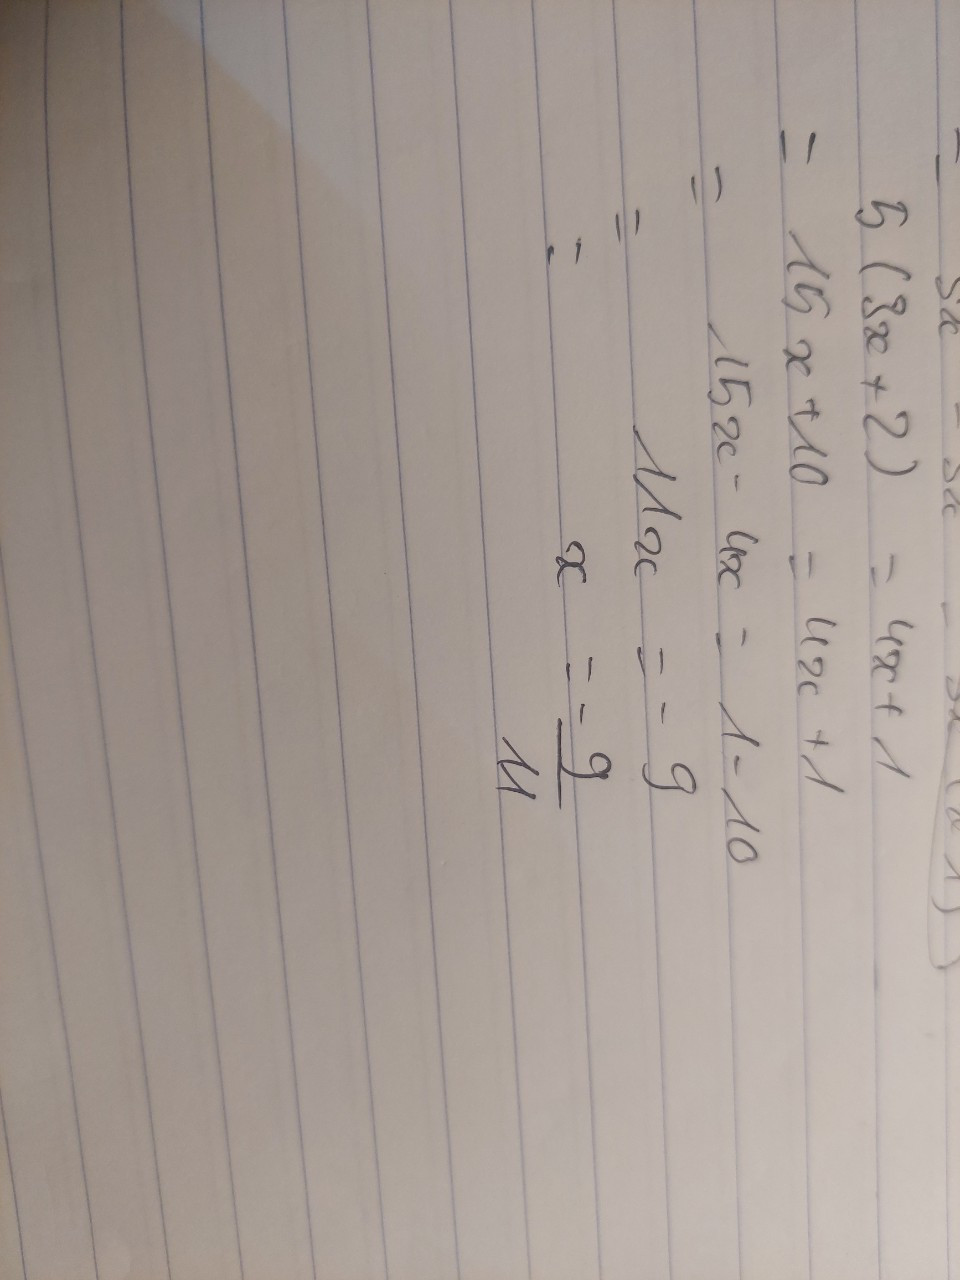 5 (3x + 2) = 4x + 1
= 15x + 10 = 4x + 1
= 15x - 4x = 1 - 10
= 11x = - 9
= x = - 9
11